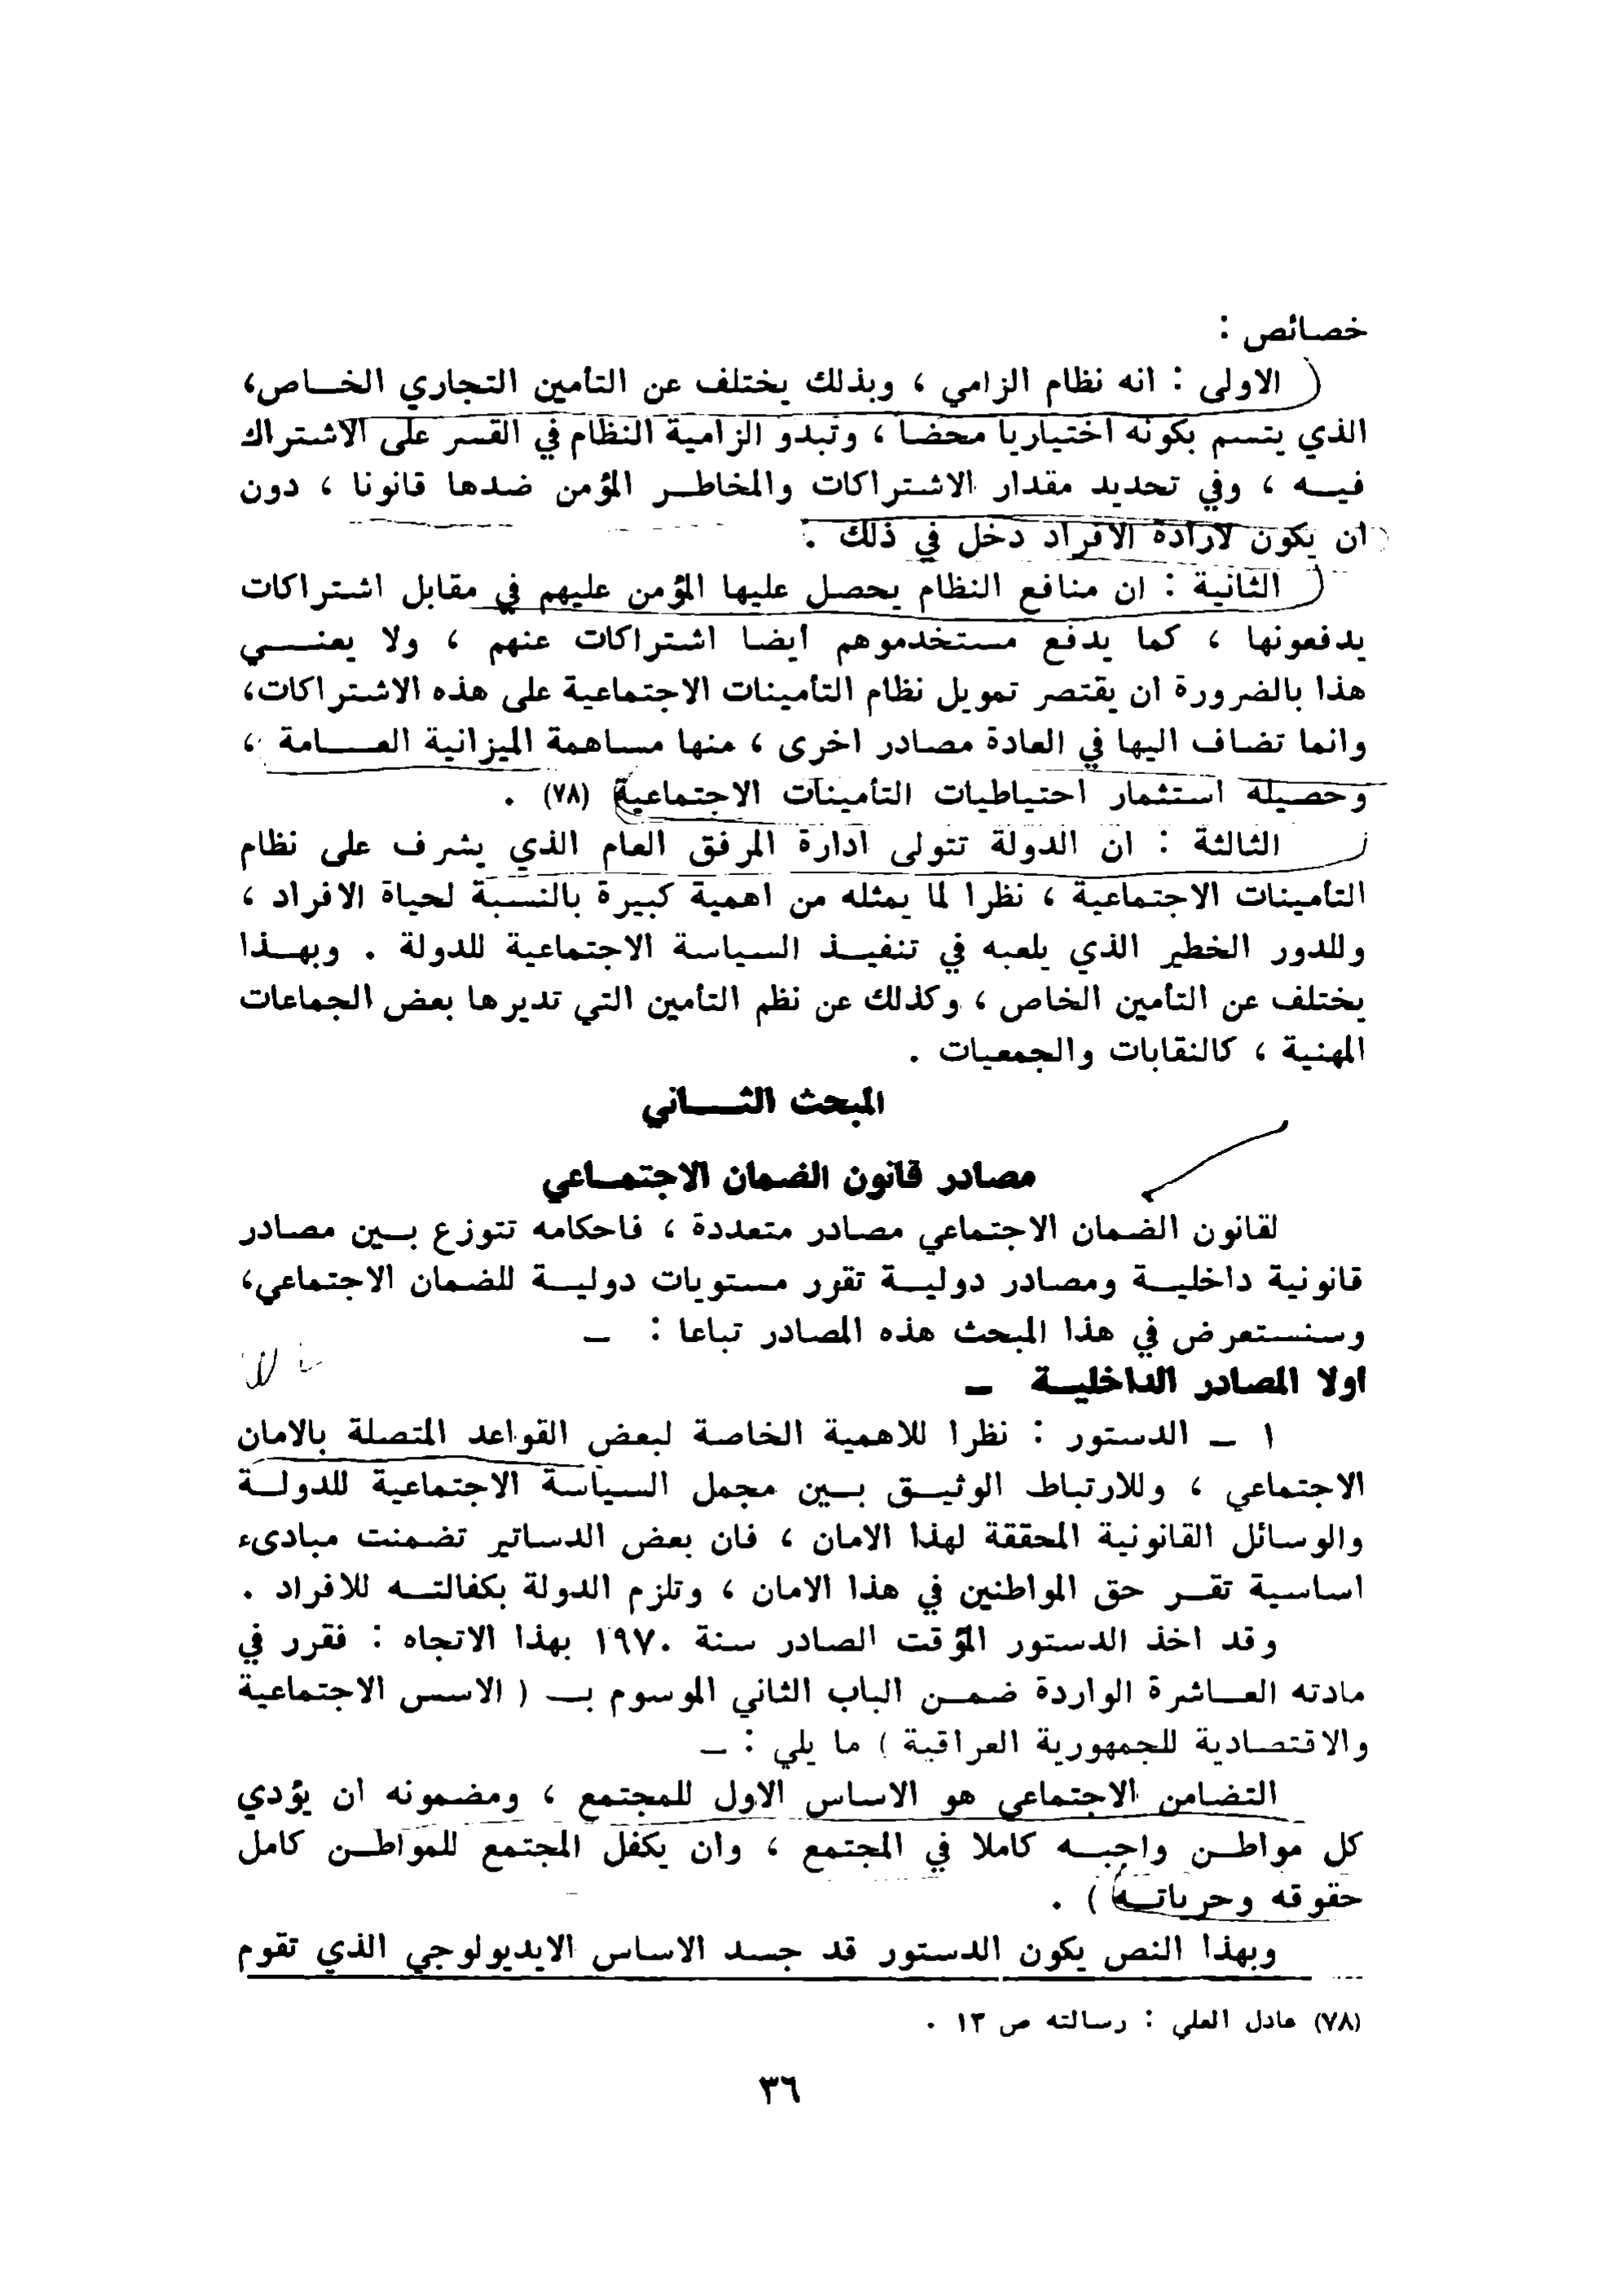 خصائص :
الاولى : انه نظام الزامي ، وبذلك يختلف عن التأمين التجاري الخاص،
الذي يتسم بكونه اختياريا محضا ، وتبدو الزامية النظام في القسر على الاشتراك
فيه ، وفي تحديد مقدار الاشتراكات والمخاطر المؤمن ضدها قانونا ، دون
ان يكون لارادة الافراد دخل في ذلك .
الثانية : ان منافع النظام يحصل عليها المؤمن عليهم في مقابل اشتراكات
يدفعونها ، كما يدفع مستخدموهم ايضا اشتراكات عنهم ، ولا يعني
هذا بالضرورة ان يقتصر تمويل نظام التأمينات الاجتماعية على هذه الاشتراكات،
وانما تضاف اليها في العادة مصادر اخرى ، منها مساهمة الميزانية العامة ،
وحصيلة استثمار احتياطيات التأمينات الاجتماعية (٧٨) .
الثالثة : ان الدولة تتولى ادارة المرفق العام الذي يشرف على نظام
التأمينات الاجتماعية ، نظرا لما يمثله من اهمية كبيرة بالنسبة لحياة الافراد ،
وللدور الخطير الذي يلعبه في تنفيذ السياسة الاجتماعية للدولة . وبهذا
يختلف عن التأمين الخاص ، وكذلك عن نظم التأمين التي تديرها بعض الجماعات
المهنية ، كالنقابات والجمعيات .
المبحث الثاني
مصادر قانون الضمان الاجتماعي
لقانون الضمان الاجتماعي مصادر متعددة ، فاحكامه تتوزع بين مصادر
قانونية داخلية ومصادر دولية تقرر مستويات دولية للضمان الاجتماعي،
وسنستعرض في هذا المبحث هذه المصادر تباعا : –
اولا المصادر الداخلية –
١ – الدستور : نظرا للاهمية الخاصة لبعض القواعد المتصلة بالامان
الاجتماعي ، وللارتباط الوثيق بين مجمل السياسة الاجتماعية للدولة
والوسائل القانونية المحققة لهذا الامان ، فان بعض الدساتير تضمنت مبادىء
اساسية تقر حق المواطنين في هذا الامان ، وتلزم الدولة بكفالته للافراد .
وقد اخذ الدستور المؤقت الصادر سنة ١٩٧٠ بهذا الاتجاه : فقرر في
مادته العاشرة الواردة ضمن الباب الثاني الموسوم بـ ( الاسس الاجتماعية
والاقتصادية للجمهورية العراقية ) ما يلي : –
التضامن الاجتماعي هو الاساس الاول للمجتمع ، ومضمونه ان يؤدي
كل مواطن واجبه كاملا في المجتمع ، وان يكفل المجتمع للمواطن كامل
حقوقه وحرياته ) .
وبهذا النص يكون الدستور قد جسد الاساس الايديولوجي الذي تقوم
(٧٨) عادل العلي : رسالته ص ١٣ .
٣٦